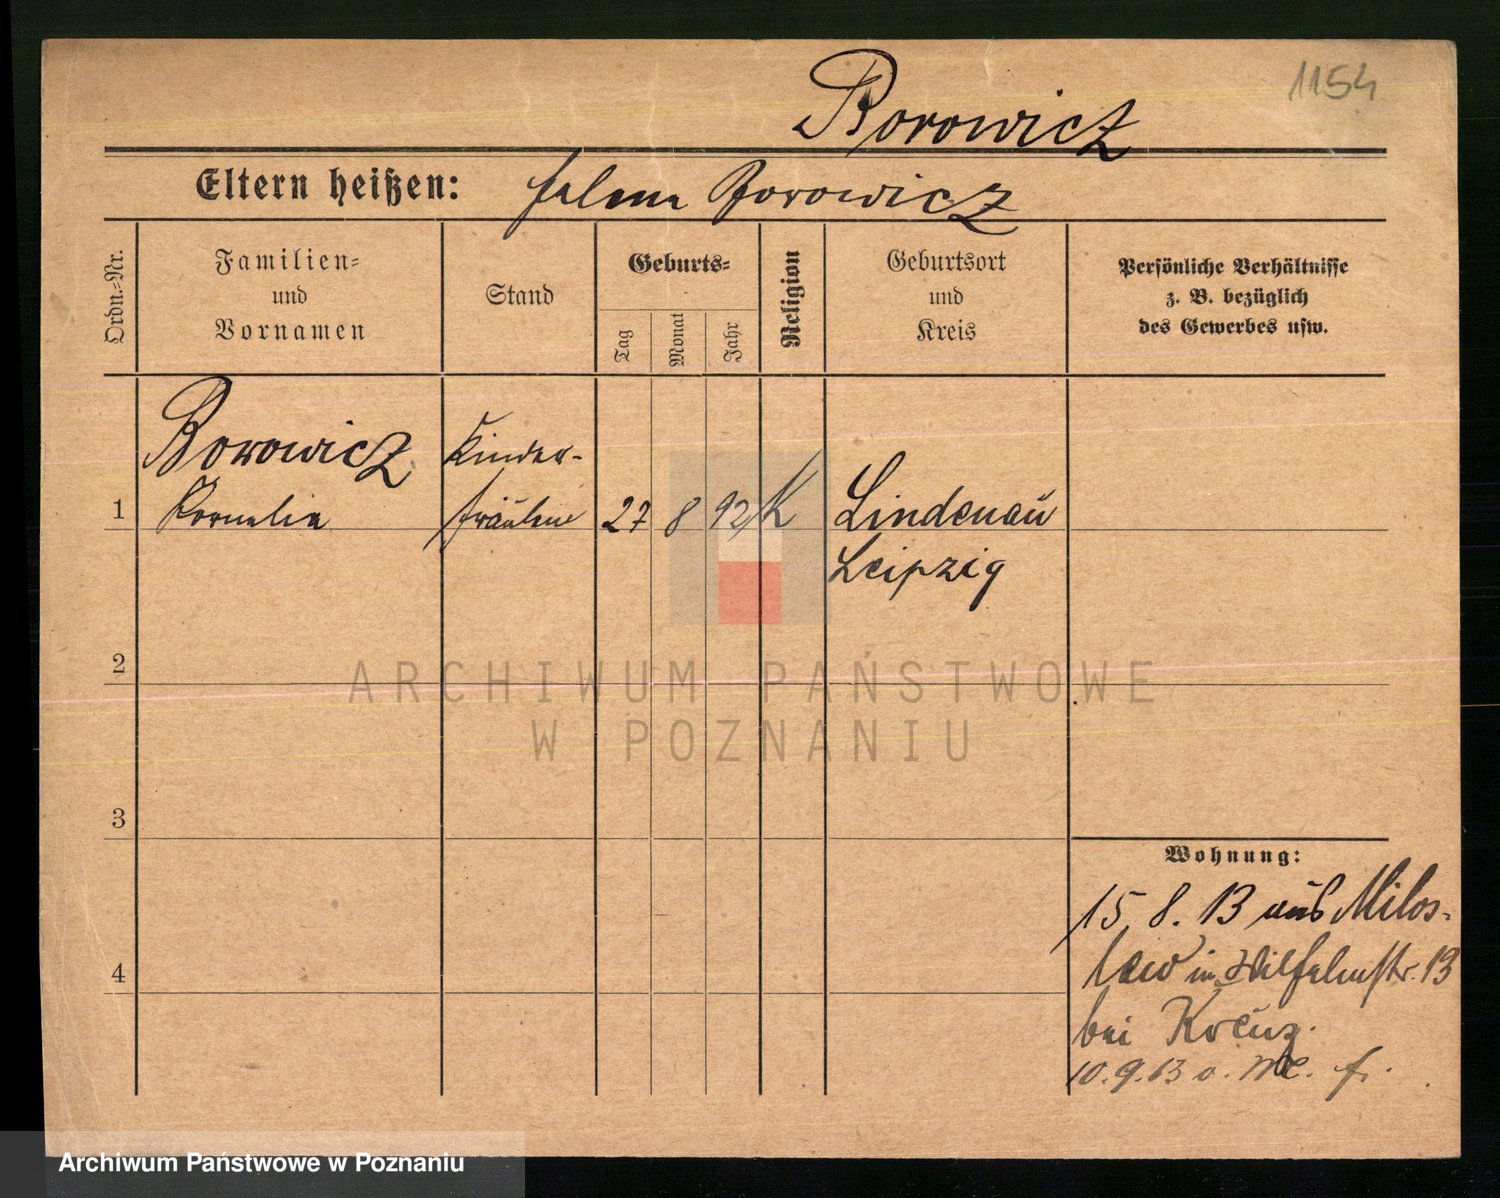 1154
Borowicz
Eltern heißen: Helene Borowicz
Ordn.-Nr.
Familien-
und
Vornamen
Stand
Geburts-
Tag
Monat
Jahr
Religion
Geburtsort
und
Kreis
Persönliche Verhältnisse
z. B. bezüglich
des Gewerbes usw.
Borowicz Kinder-
1 Kornelia fräulein 27 8 92 K Lindenau
Leipzig
2
ARCHIWUM PAŃSTWOWE
W POZNANIU
3
Wohnung:
15.8.13 aus Milos-
law in Wilhelmstr. 13
4
bei Kreuz.
10.9.13 o.
Archiwum Państwowe w Poznaniu